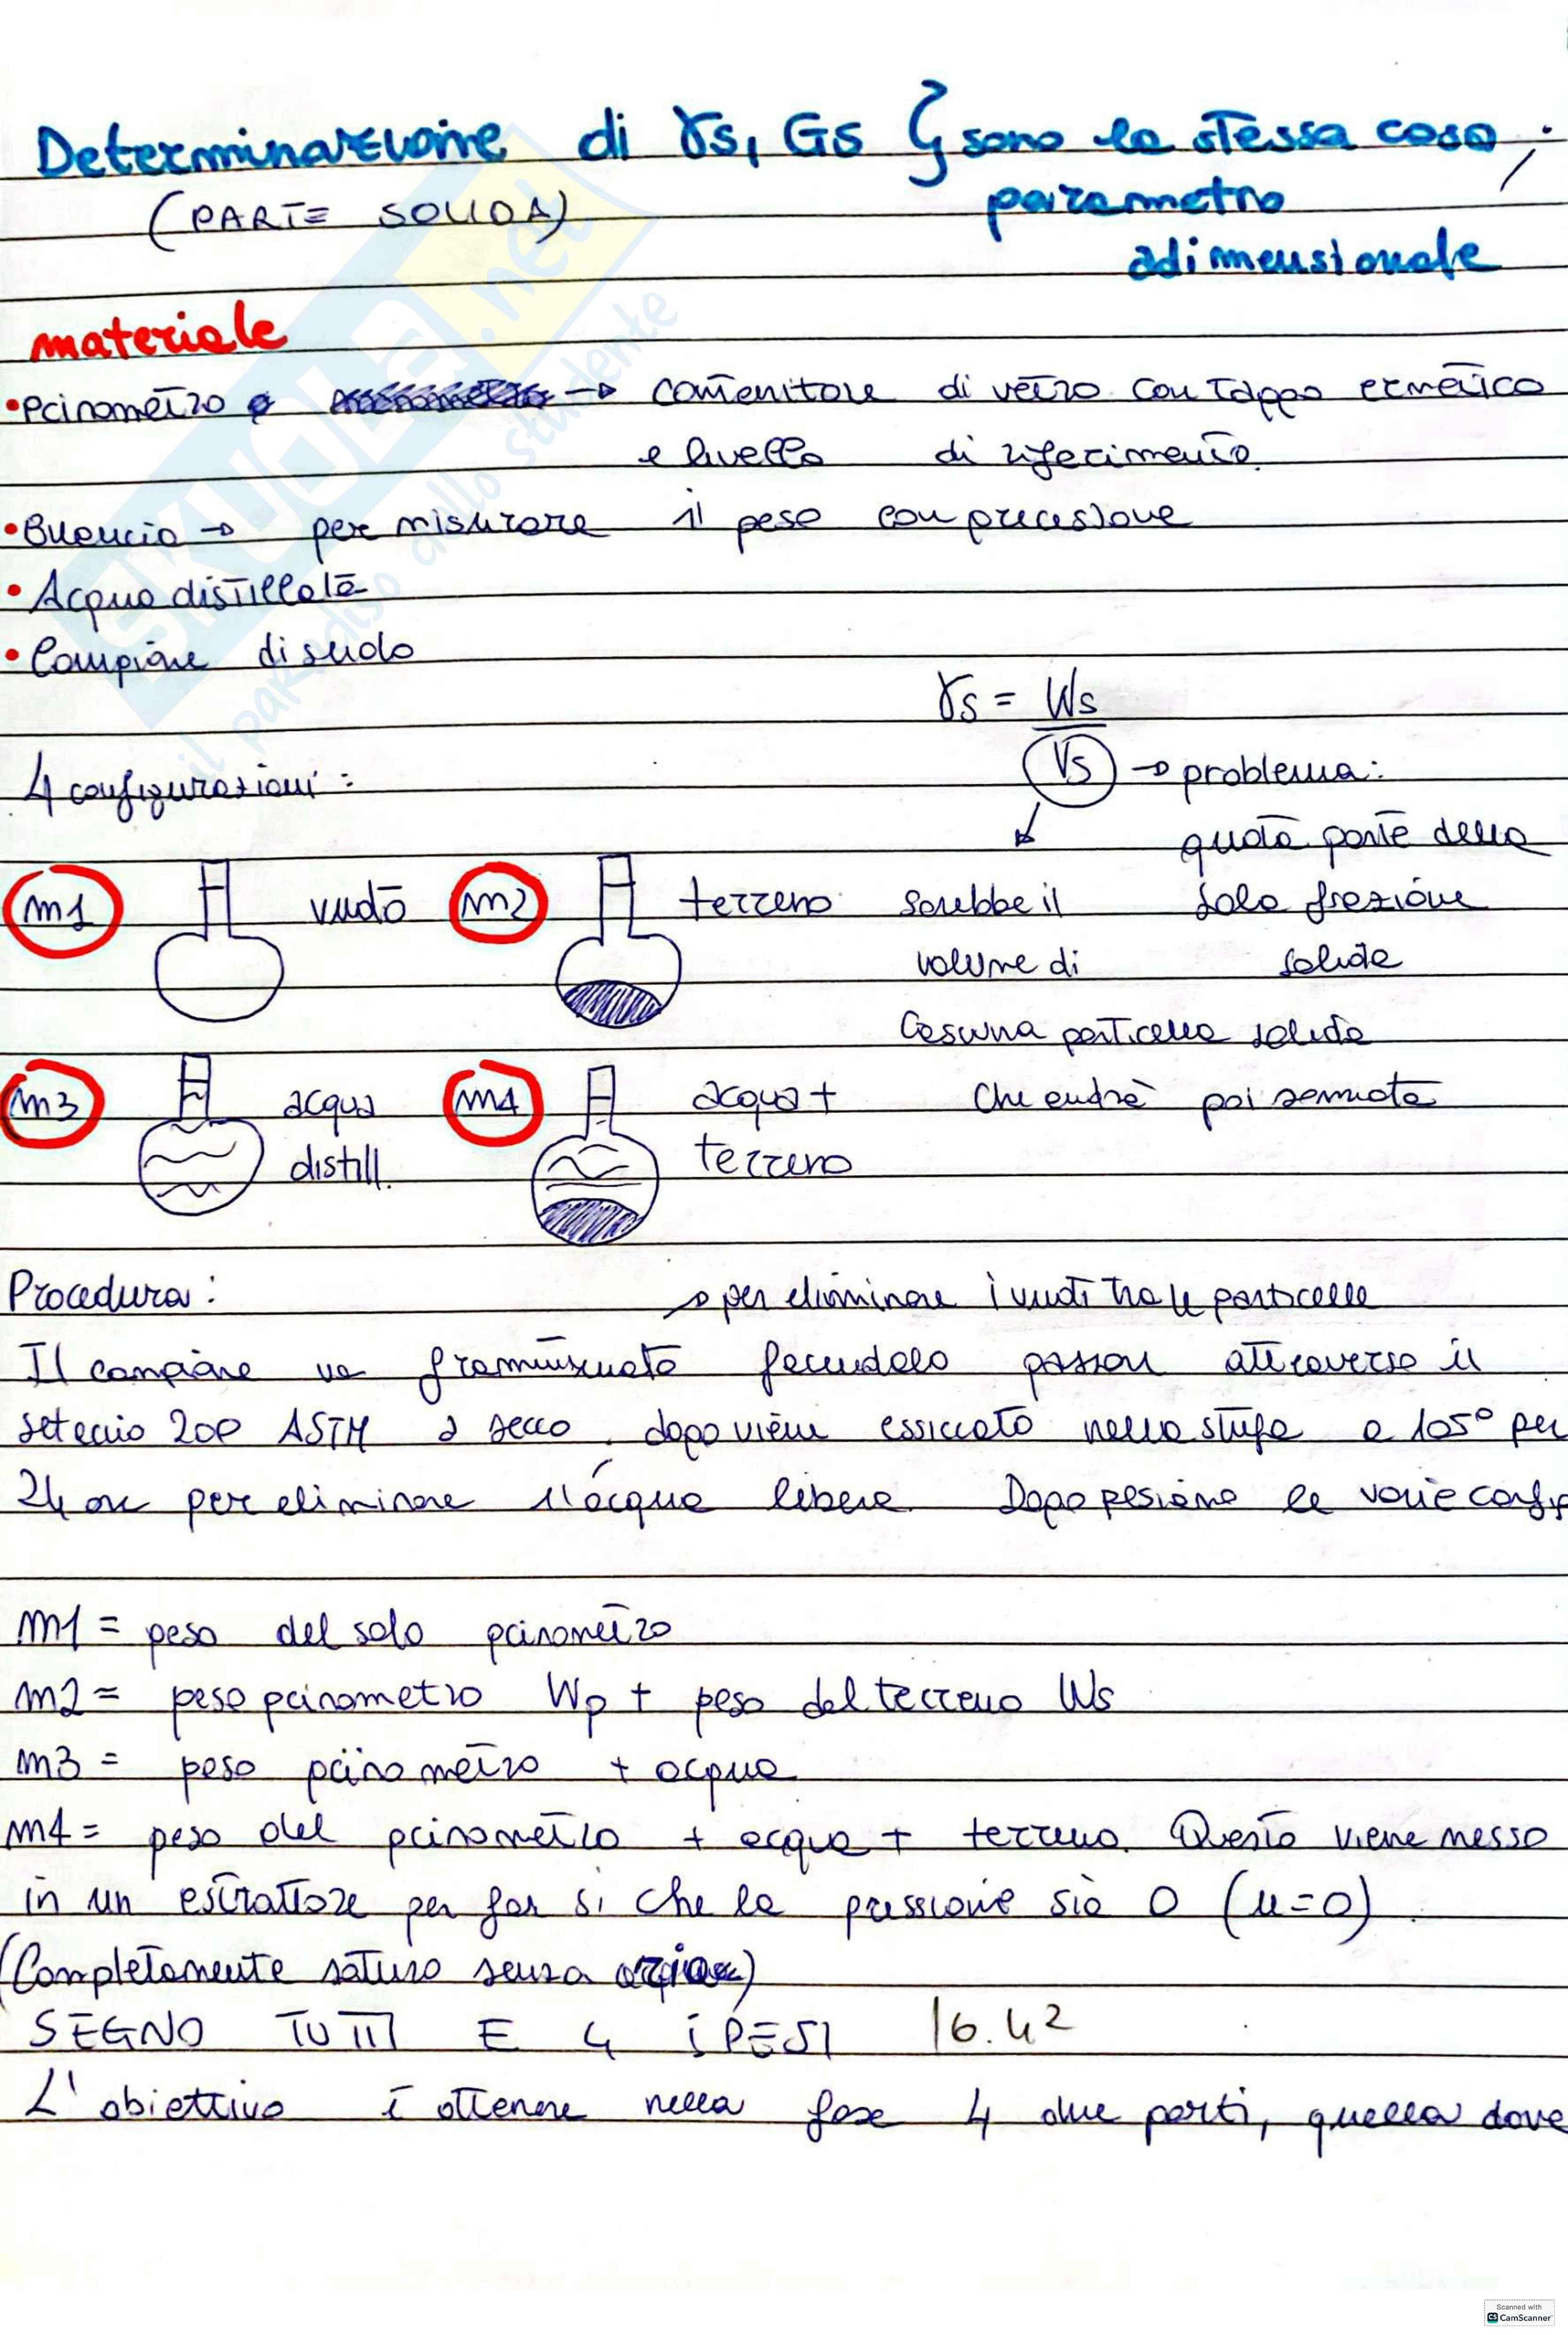 Determinazione di γs, Gs } sono la stessa cosa;
(PARTE SOLIDA)
parametro
adimensionale
materiale
• Picnometro → contenitore di vetro con tappo ermetico
e livello di riferimento
• Bilancia → per misurare il peso con precisione
• Acqua distillata
• Campione di suolo
γs = Ws
Vs → problema:
4 configurazioni:
quota parte della
m1 vuoto m2 terreno
sarebbe il sola frazione
volume di solida
Ciascuna particella solida
m3 acqua m4 acqua +
che andrà poi sommata
distill. terreno
Procedura: → per eliminare i vuoti tra le particelle
Il campione va frantumato facendolo passare attraverso il
setaccio 200 ASTM a secco, dopo viene essiccato nella stufa a 105° per
24 ore per eliminare l'acqua libera. Dopo pesiamo le varie conf.
m1 = peso del solo picnometro
m2 = peso picnometro Wp + peso del terreno Ws
m3 = peso picnometro + acqua
m4 = peso del picnometro + acqua + terreno. Questo viene messo
in un estrattore per far si che la pressione sia 0 (u=0).
(Completamente saturo senza aria)
SEGNO TUTTI E 4 i PESI 16.42
L'obiettivo è ottenere nella fase 4 due parti, quella dove
SKUOLA.net
il paradiso dello studente
Scanned with
CS CamScanner